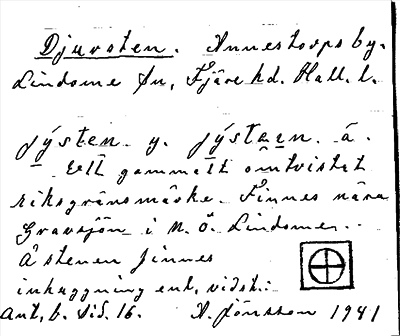 Djursten. Annestorps by.
Lindome sn, Fjäre hd. Hall. l.
jý̱sten y. jýste̱e̱n. ā.
Ett gammalt omtvistat
riksgränsmärke. Finnes nära
Gravsjön i N. Ö. Lindome.
Å stenen finnes
inhuggning enl. vidst.:
Ant. b. sid. 16. A. Jönsson 1941